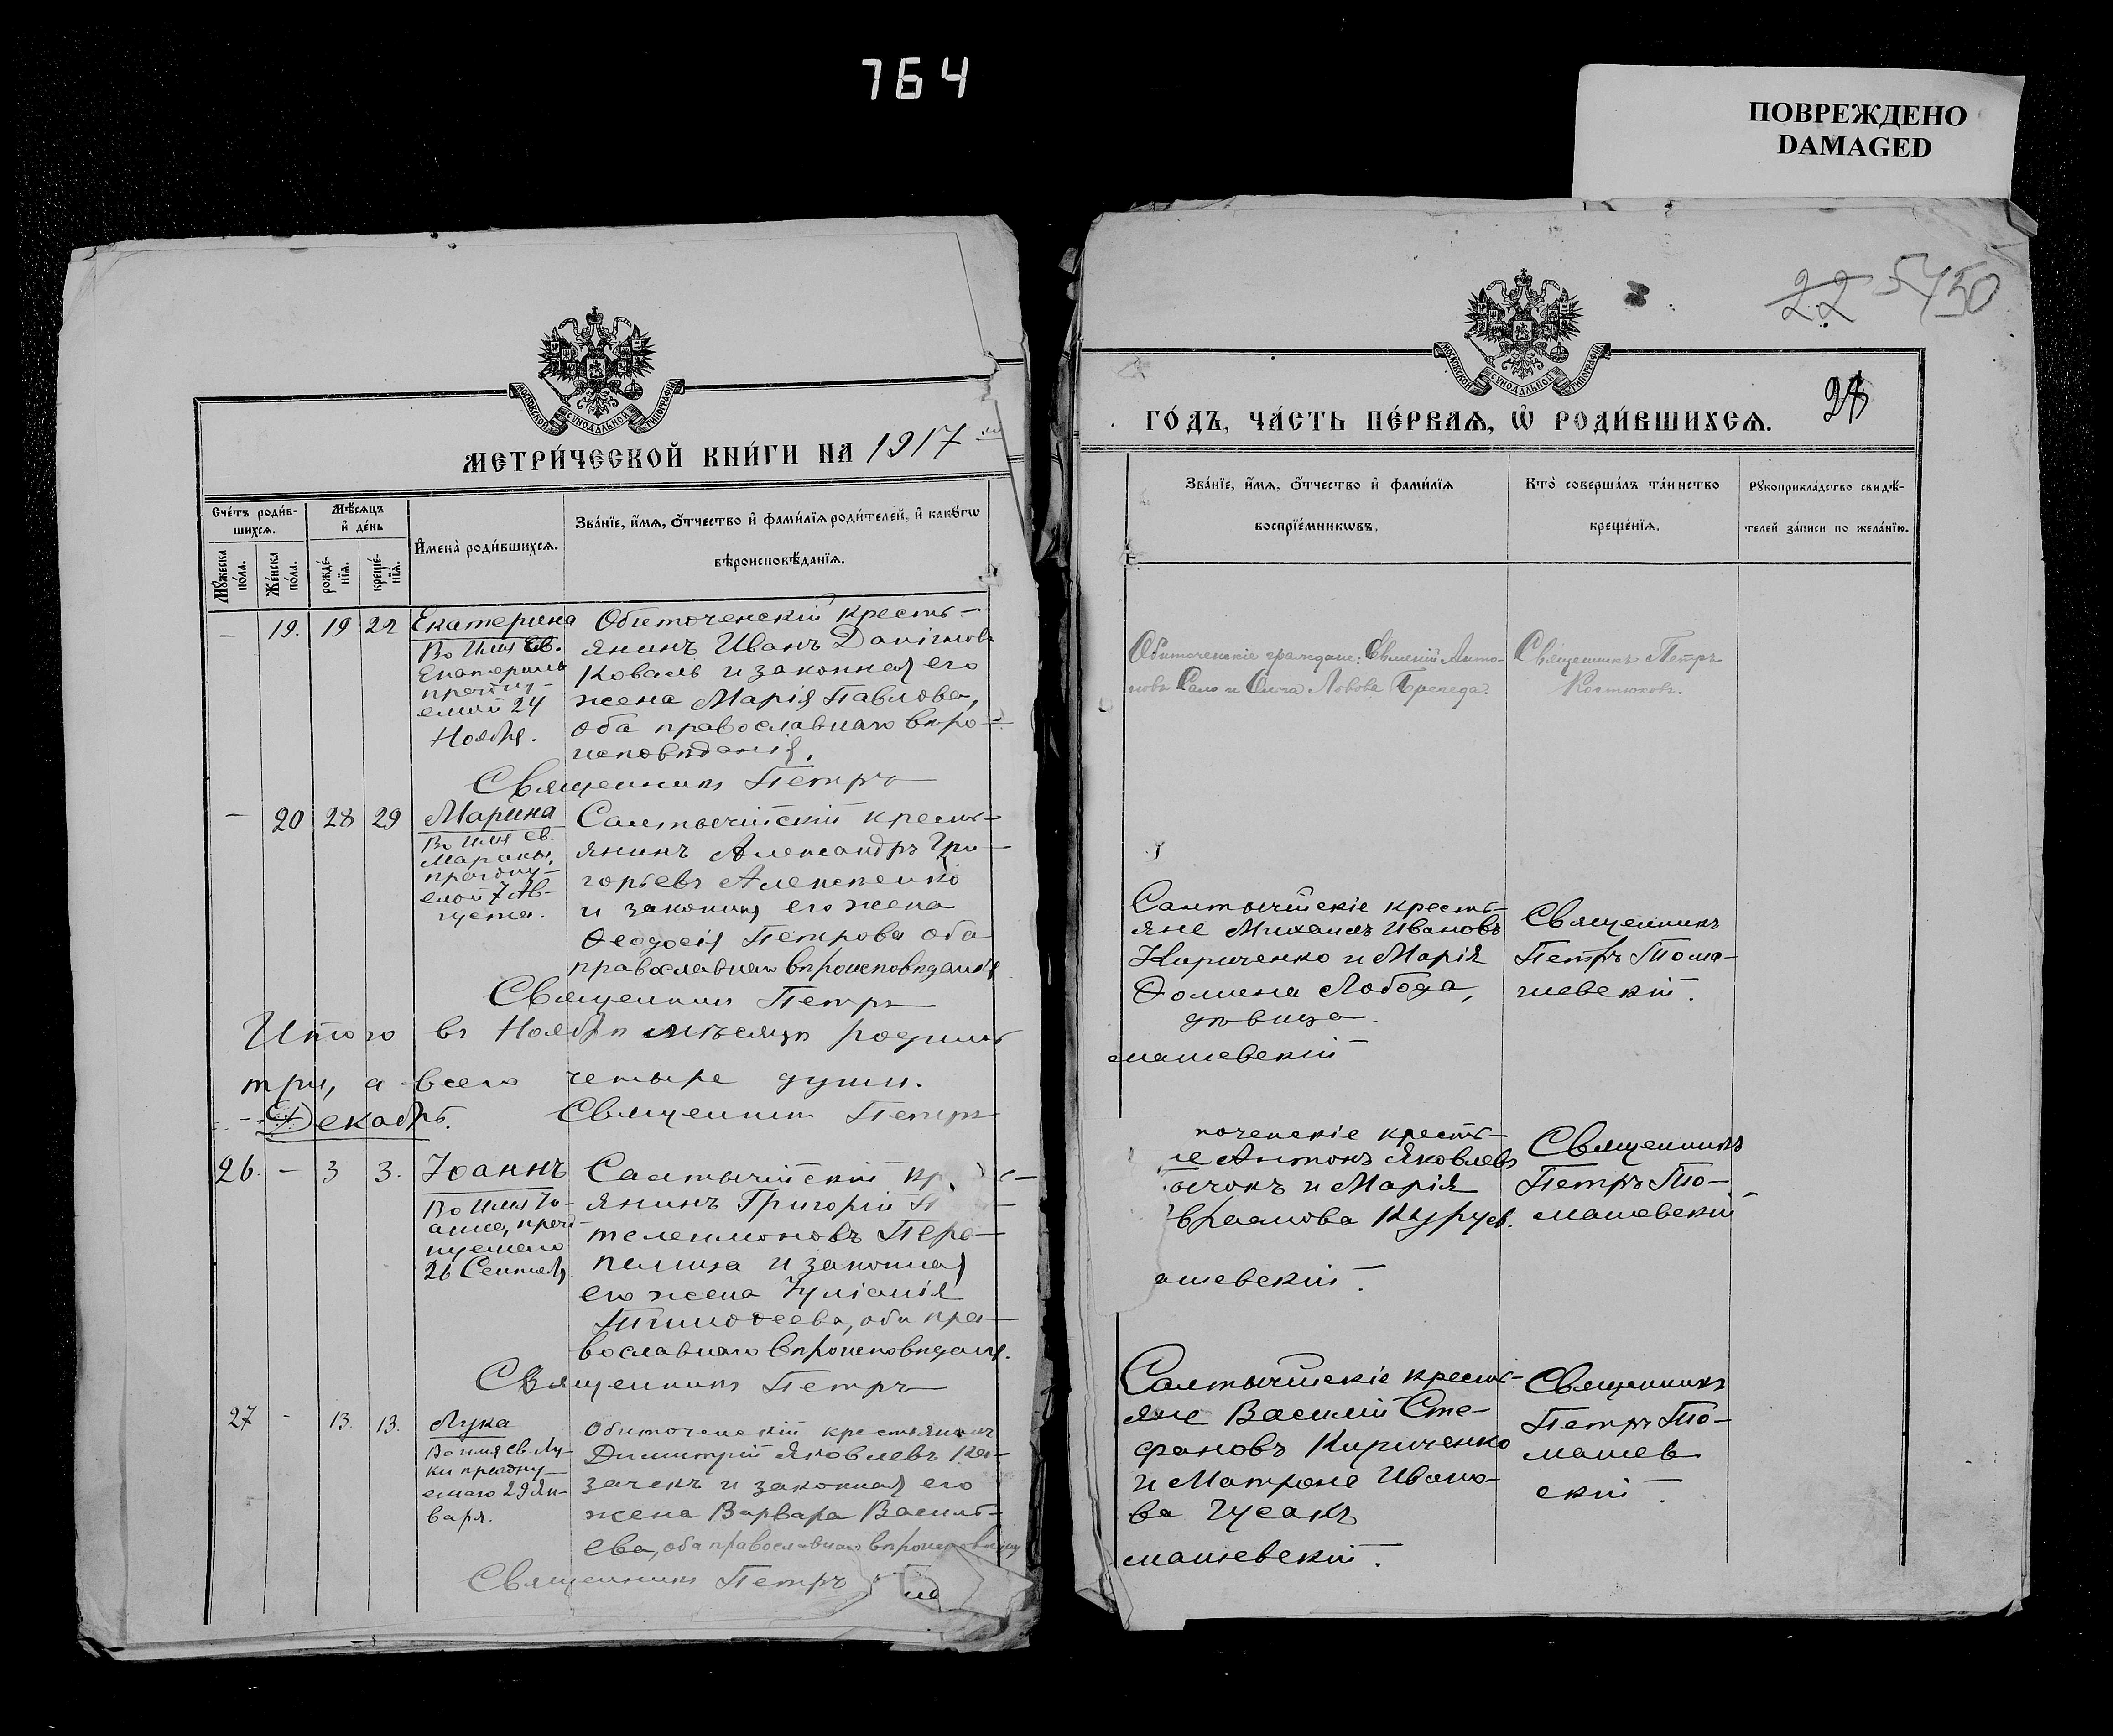 764
ПОВРЕЖДЕНО
DAMAGED
МОСКОВСКОЙ СѴНОДАЛЬНОЙ ТИПОГРАФІИ
МЕТРИ́ЧЕСКОЙ КНИ́ГИ НА 1917
Сче́тъ роди́в-
шихсѧ.
Мѣ́сѧцъ
и҆ де́нь
Мꙋ́жеска
по́ла.
Же́нска
по́ла.
рожде́-
нїѧ.
креще́-
нїѧ.
И҆мена̀ роди́вшихсѧ.
Зва́нїе, и҆́мѧ, ѻ҆́тчество и҆ фами́лїѧ роди́телей, и҆ како́гѡ
вѣроисповѣ́данїѧ.
— 19. 19 22 Екатерина
Во имя св.
Екатерины
праздну-
емой 24
Ноября.
Обиточенскій кресть-
янинъ Иванъ
Коваль и законная его
жена Марія Павлова,
оба православнаго вѣро-
исповѣданія.
Священникъ Петръ
— 20 28 29 Марина
Во имя св.
Марины,
празdну-
емой 7 Ав-
густа.
Салтычійскій кресть-
янинъ Александръ Гри-
горьевъ
и законная его жена
Ѳеодосія Петрова оба
православнаго вѣроисповѣданія
Священникъ Петръ
Итого въ Ноябрѣ мѣсяцѣ родилось
три, а всего четыре души.
Священникъ Петръ
Декабрь.
26. — 3 3. Іоаннъ
Во имя Іо-
анна, празд-
нуемаго
26 Сентября
Салтычійскій кр
янинъ Григорій П
телеимоновъ Пере-
пелица и законная
его жена Іуліанія
Тимоѳеева, оба пра-
вославнаго вѣроисповѣданія.
Священникъ Петръ
27 - 13. 13. Лука
Во имя св. Лу-
ки праздну-
емаго 29 Ян-
варя.
Обиточенскій крестьянинъ
Димитрій Яковлевъ Ка-
зачекъ и законная его
жена Варвара Василь-
ева, оба православнаго
Священникъ Петръ
22 54 50
МОСКОВСКОЙ СѴНОДАЛЬНОЙ ТИПОГРАФІИ
ГО́ДЪ, ЧА́СТЬ ПЕ́РВАѦ, Ѡ҆ РОДИ́ВШИХСѦ.
Зва́нїе, и҆́мѧ, ѻ҆́тчество и҆ фами́лїѧ
воспрїе́мникѡвъ.
Кто̀ соверша́лъ та́инство
креще́нїѧ.
Рꙋкоприкла́дство свидѣ́-
телей за́писи по жела́нїю.
Обиточенскіе граждане: Евменій Анто-
новъ Сало и Ольга Львова
Священникъ Петръ
Костюковъ.
Салтычійскіе кресть-
яне Михаилъ Ивановъ
Кириченко и Марія
Ѳомина Лобода,
дѣвица.
Священникъ
Петръ Тома-
шевскій.
машевскій
точенскіе кресть-
не Антонъ Яковлевъ
ычокъ и Марія
враамова
Священникъ
Петръ То-
машевскій
ашевскій.
Салтычійскіе кресть-
яне Василій Сте-
фановъ Кириченко
и Матрона Ивано-
ва Гусакъ
Священникъ
Петръ То-
машев
скій.
машевскій.